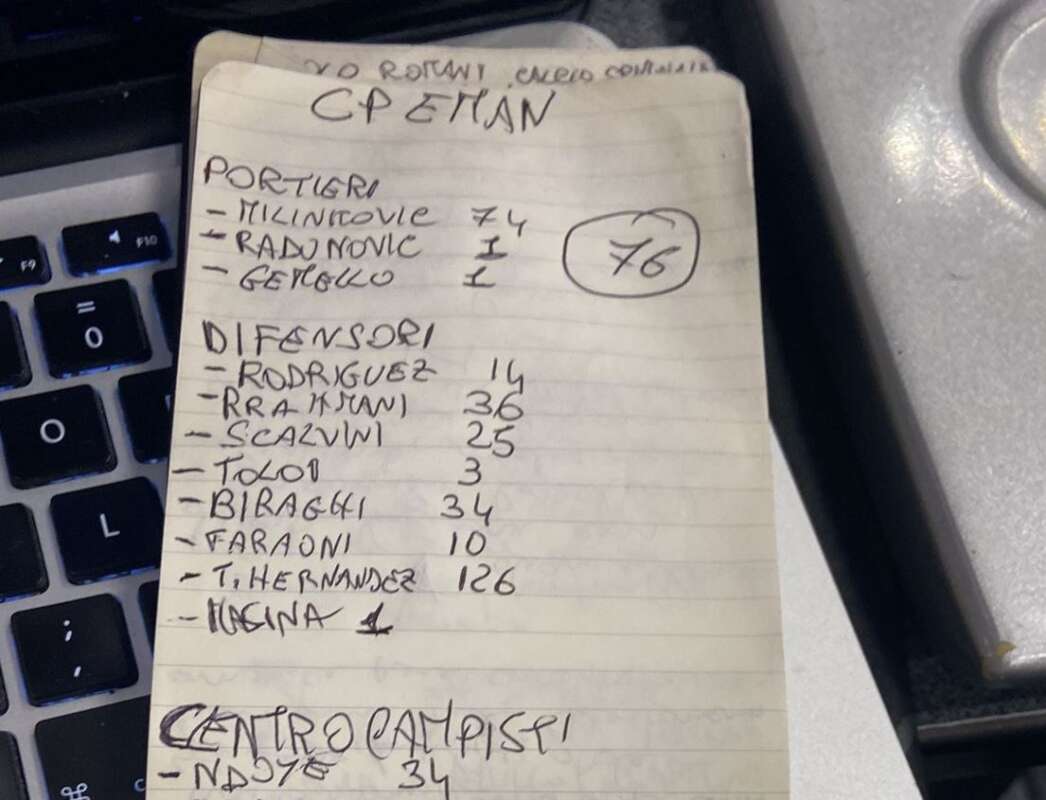 ROMANI CALCIO
CP EMAN
PORTIERI
- MILINKOVIC 74
- RADUNOVIC 1
- GEMELLO 1
76
DIFENSORI
- RODRIGUEZ 14
- RRAHMANI 36
- SCALVINI 25
- TOLOI 3
- BIRAGHI 34
- FARAONI 10
- T. HERNANDEZ 126
- MASINA 1
CENTROCAMPISTI
- NDOYE 34
F9
F10
=
0
O
L
;
,
⌘